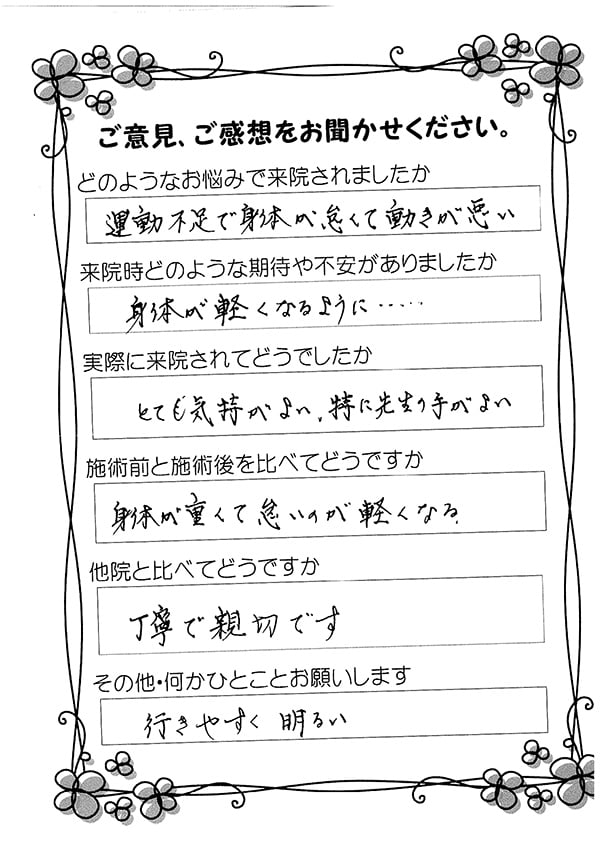 ご意見、ご感想をお聞かせください。
どのようなお悩みで来院されましたか
運動不足で身体が怠くて動きが悪い
来院時どのような期待や不安がありましたか
身体が軽くなるように……
実際に来院されてどうでしたか
とても気持がよい、特に先生の手がよい
施術前と施術後を比べてどうですか
身体が重くて怠いのが軽くなる。
他院と比べてどうですか
丁寧で親切です
その他・何かひとことお願いします
行きやすく 明るい